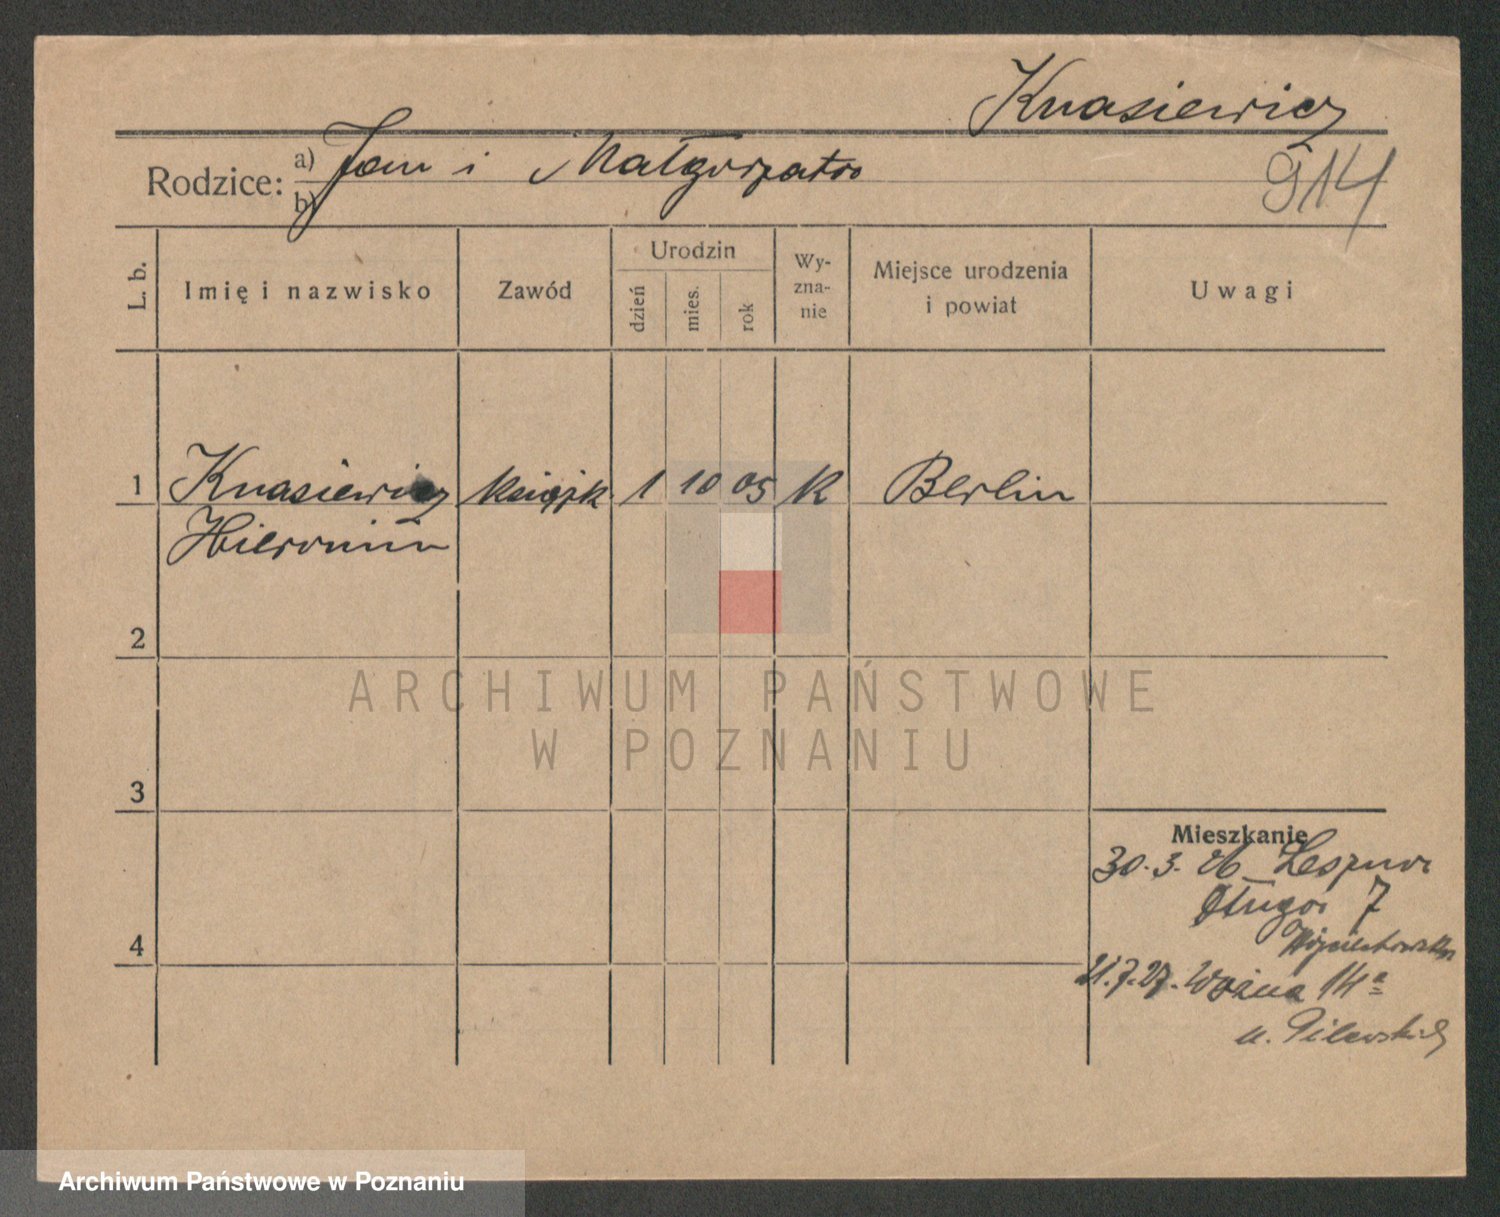 Knasiewicz
Rodzice: a) Jan i Małgorzata
b)
914
L. b. Imię i nazwisko Zawód Urodzin dzień mies. rok Wy-zna-nie Miejsce urodzenia i powiat Uwagi
1 Knasiewicz książk 1 10 05 K Berlin
Hieronim
2
ARCHIWUM PAŃSTWOWE
W POZNANIU
3
Mieszkanie
30.3.26 Leszno
Długa 7
Wojciechowska
4
21.7.27. Woźna 14a
u. Pilewskich
Archiwum Państwowe w Poznaniu